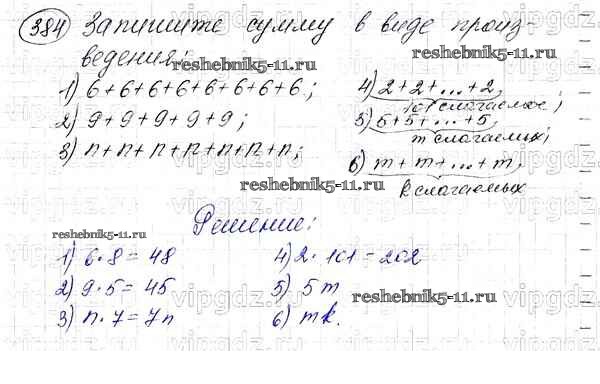 384 Запишите сумму в виде произ-
ведения:
1) 6+6+6+6+6+6+6+6;
2) 9+9+9+9+9;
3) n+n+n+n+n+n+n;
4) 2+2+...+2,
101 слагаемое;
5) 5+5+...+5,
m слагаемых;
6) m+m+...+m,
k слагаемых
Решение:
1) 6·8=48
2) 9·5=45
3) n·7=7n
4) 2·101=202
5) 5m
6) mk.
reshebnik5-11.ru
reshebnik5-11.ru
reshebnik5-11.ru
reshebnik5-11.ru
reshebnik5-11.ru
vipgdz.ru